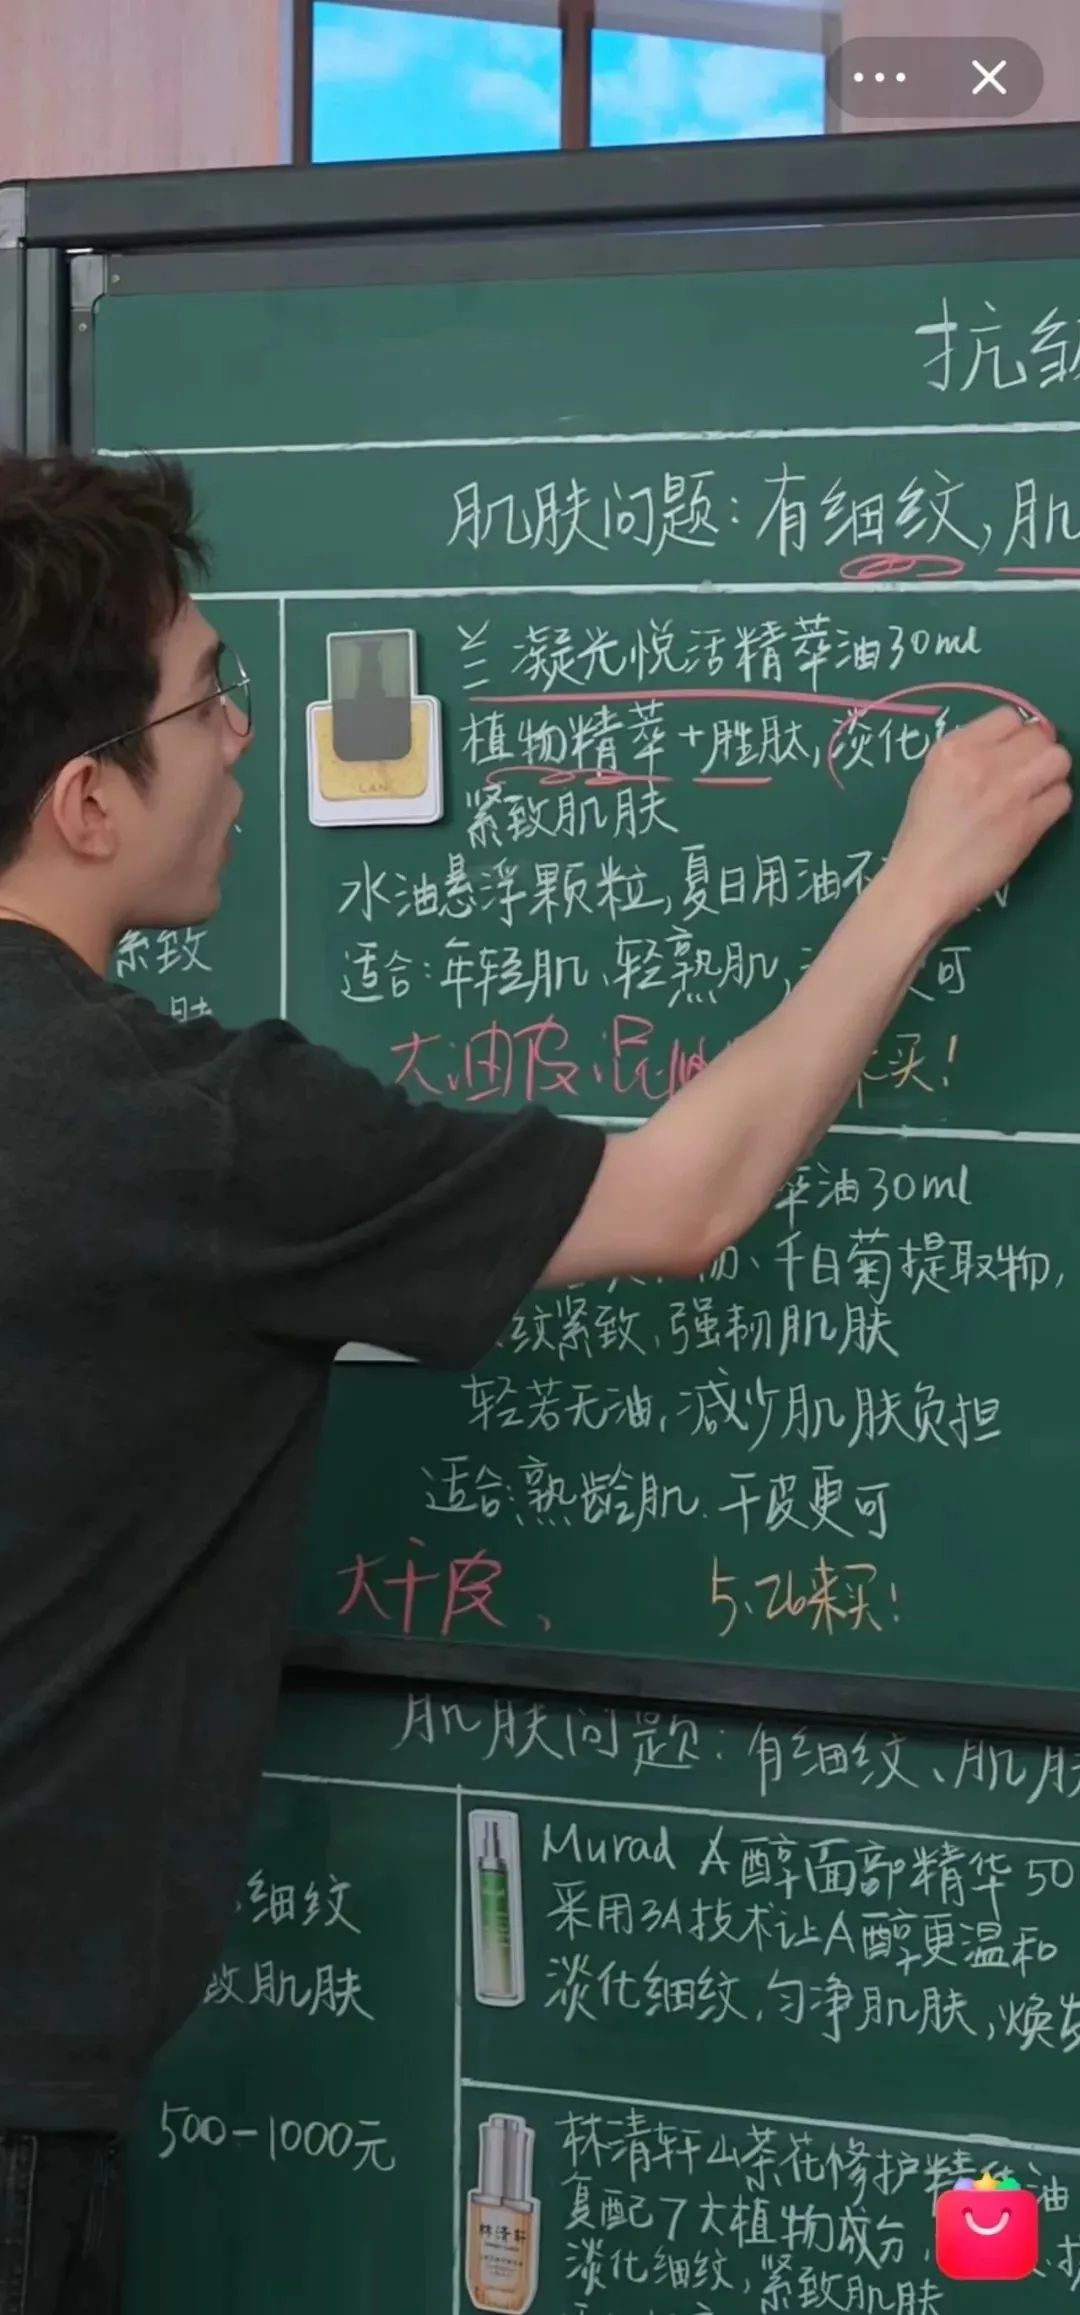 抗皱
肌肤问题：有细纹，肌
兰 凝光悦活精萃油30ml
植物精萃+胜肽，淡化细
LAN
紧致肌肤
水油悬浮颗粒，夏日用油不
适合：年轻肌、轻熟肌，
可
大油皮、混油
来买！
紧致
肤
萃油30ml
物、千白菊提取物，
纹紧致，强韧肌肤
轻若无油，减少肌肤负担
适合：熟龄肌．干皮更可
大干皮、
5.26来买！
肌肤问题：有细纹、肌肤
细纹
致肌肤
500-1000元
Murad A醇面部精华50
采用3A技术让A醇更温和
淡化细纹，匀净肌肤，焕发
林清轩山茶花修护精华油
复配7大植物成分，
淡化细纹，紧致肌肤
林清轩